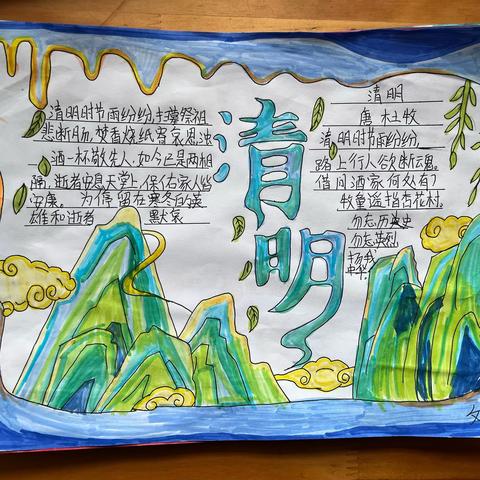 清明时节雨纷纷,扫墓祭祖
悲断肠,焚香烧纸寄哀思,浊
酒一杯敬先人,如今已是两相
隔,逝者安息天堂上,保佑家人皆
安康。为停留在寒冬的英
雄和逝者 默哀
清明
清明
唐 杜牧
清明时节雨纷纷,
路上行人欲断魂。
借问酒家何处有?
牧童遥指杏花村。
勿忘历史
勿忘英烈
扬我
中华